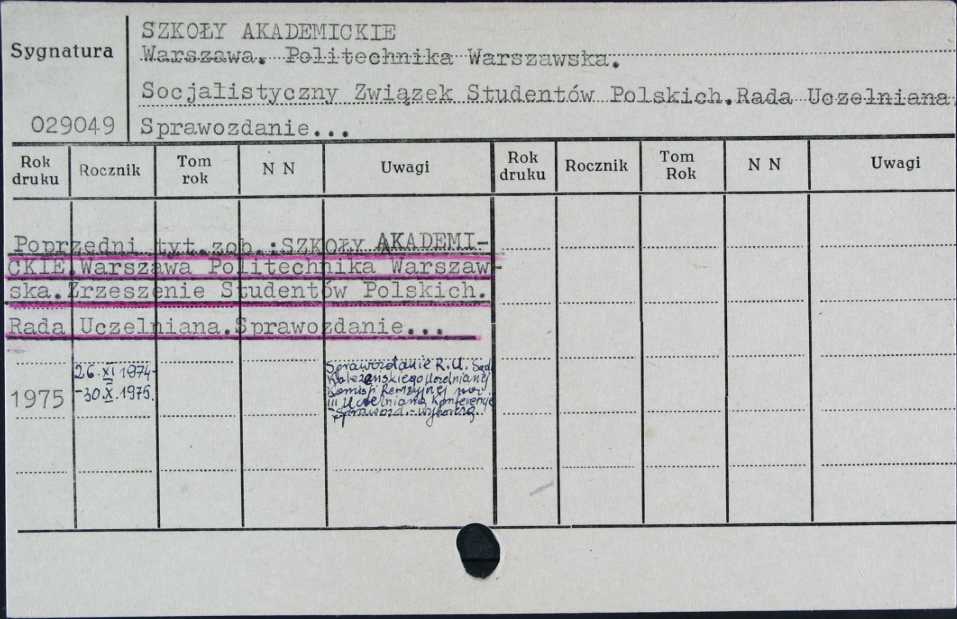 SZKOŁY AKADEMICKIE
Sygnatura
Warszawa. Politechnika Warszawska.
Socjalistyczny Związek Studentów Polskich.Rada Uczelniana.
029049
Sprawozdanie...
Rok druku Rocznik Tom rok N N Uwagi Rok druku Rocznik Tom Rok N N Uwagi
Poprzedni tyt.zob.:SZKOŁY AKADEMI-
CKIE.Warszawa Politechnika Warszaw-
ska.Zrzeszenie Studentów Polskich.
Rada Uczelniana.Sprawozdanie...
1975
26.XI 1974-
-30.X.1975.
Sprawozdanie R.U. Sądu
Koleżeńskiego Uczelnianej
Komisji Rewizyjnej
III Uczelniana Konferencja
Sprawozd.-wyborcza.